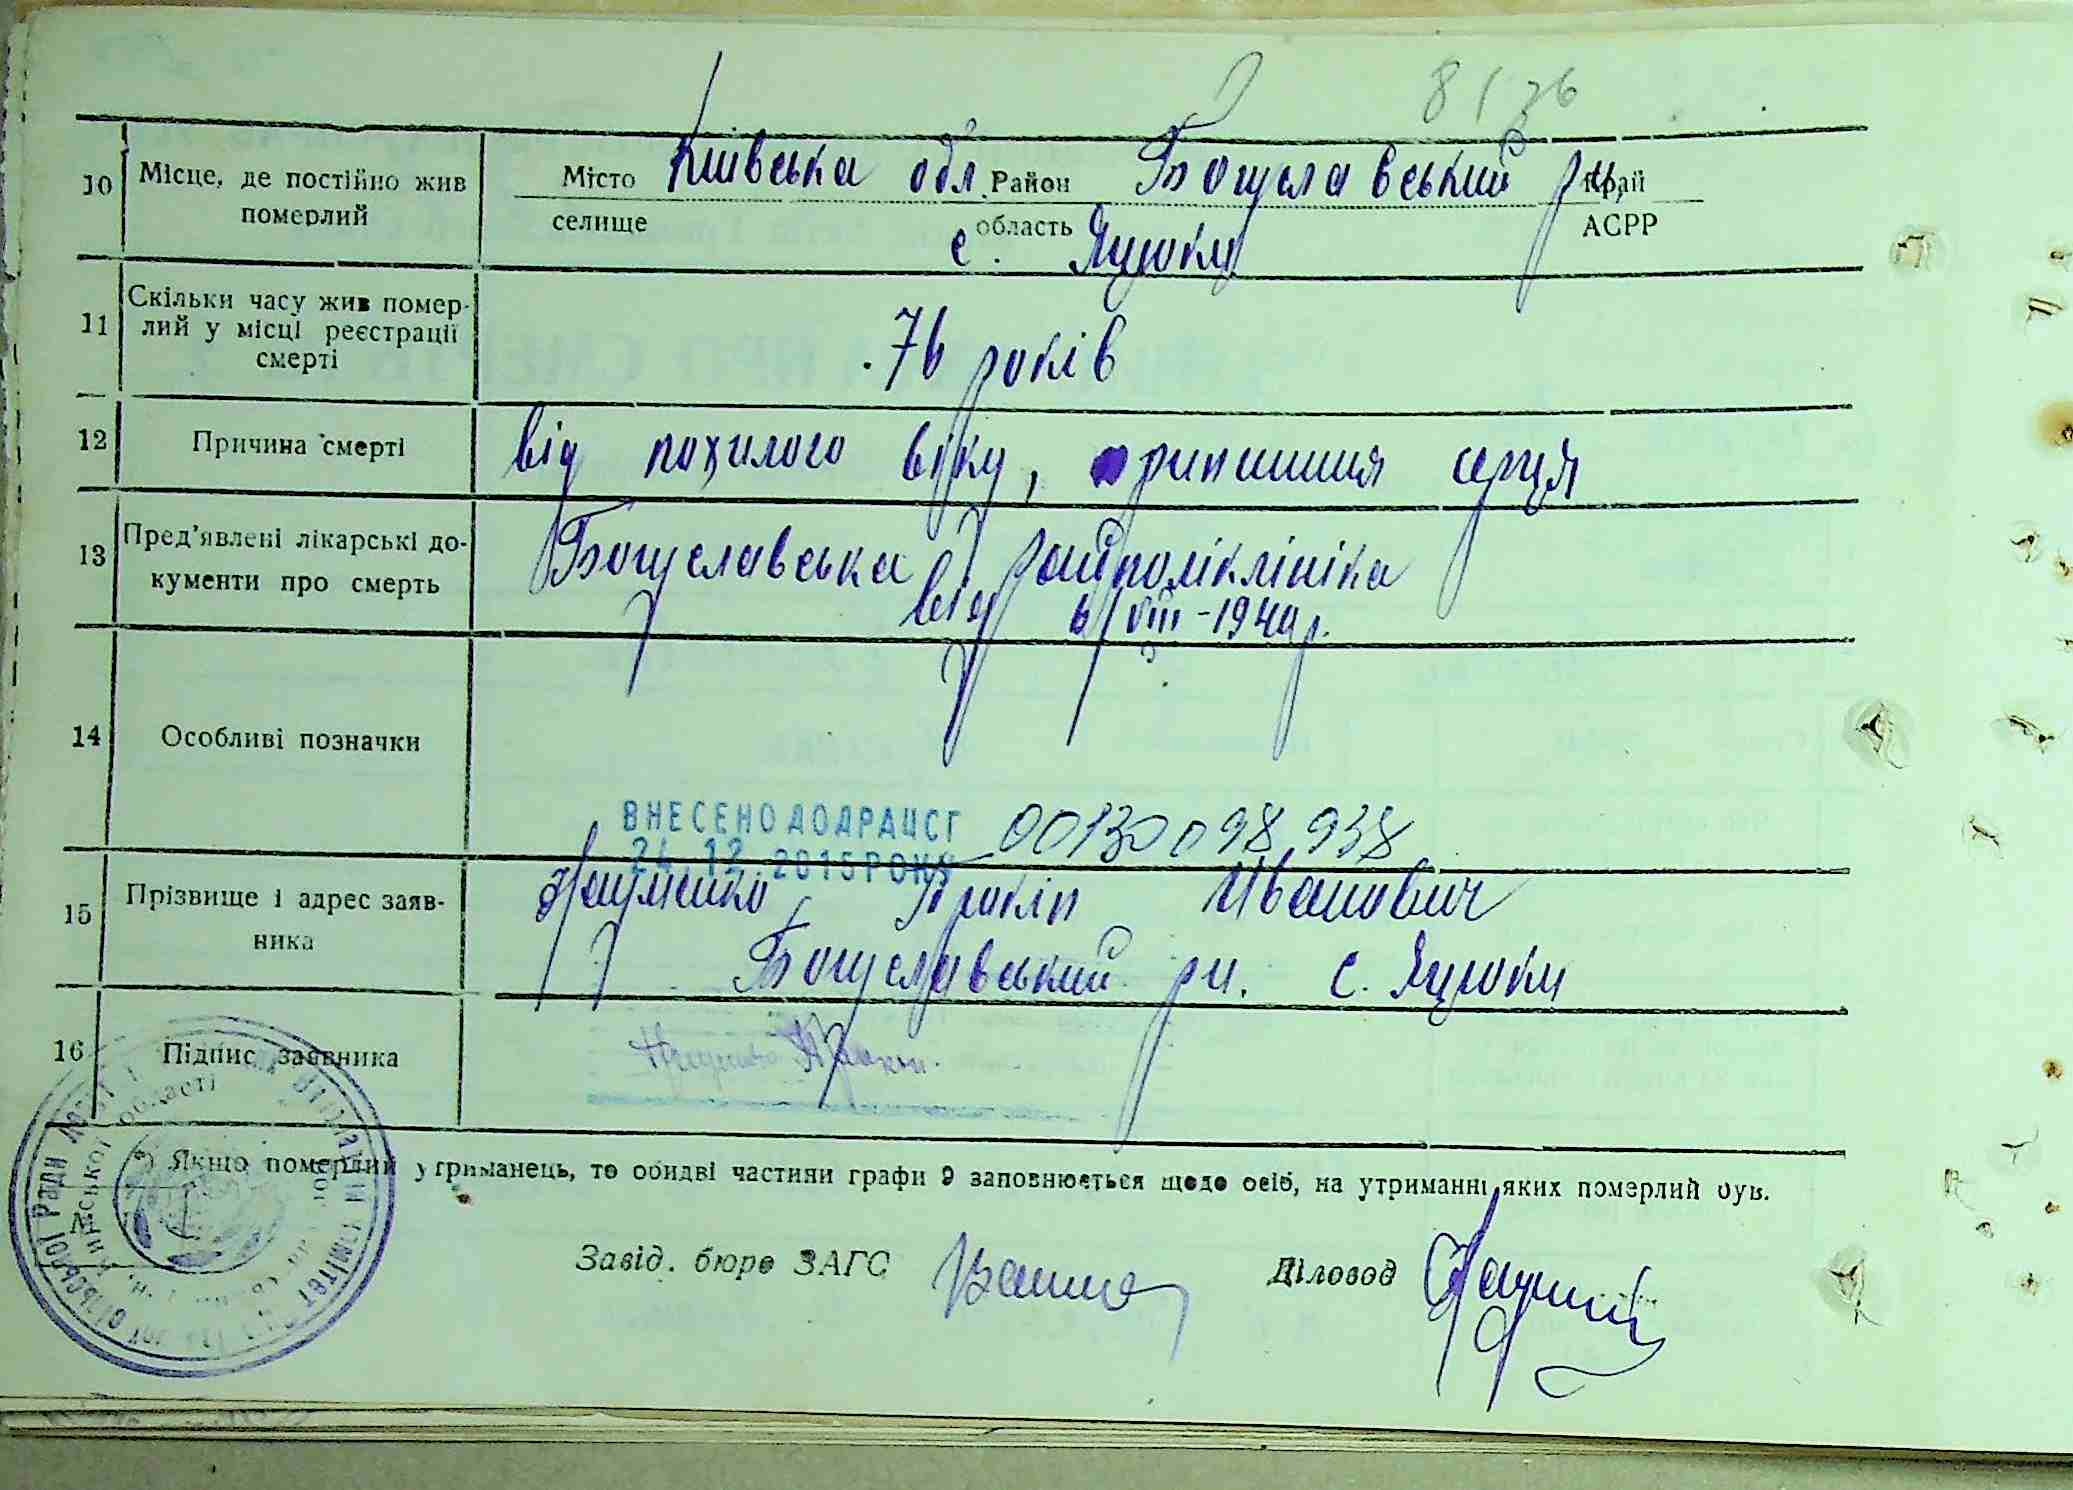 8 76
10 Місце, де постійно жив померлий
Місто Київська обл. Район Богуславський рн, Край
селище область АСРР
с. Яцюки
11 Скільки часу жив помер-
лий у місці реєстрації
смерті
76 років
12 Причина смерті
від похилого віку, припинення серця
13 Пред'явлені лікарські до-
кументи про смерть
Богуславська райполіклініка
від 6/VIII-1940 р.
14 Особливі позначки
ВНЕСЕНО ДО ДРАЦСГ 00130098938
24.12.2015 РОКУ
15 Прізвище і адрес заяв-
ника
Науменко Прокіп Иванович
Богуславський рн. с. Яцюки
16 Підпис заявника
*) Якщо померлий утриманець, то обидві частини графи 9 заповнюється щодо осіб, на утриманні яких померлий був.
Завід. бюро ЗАГС
Діловод